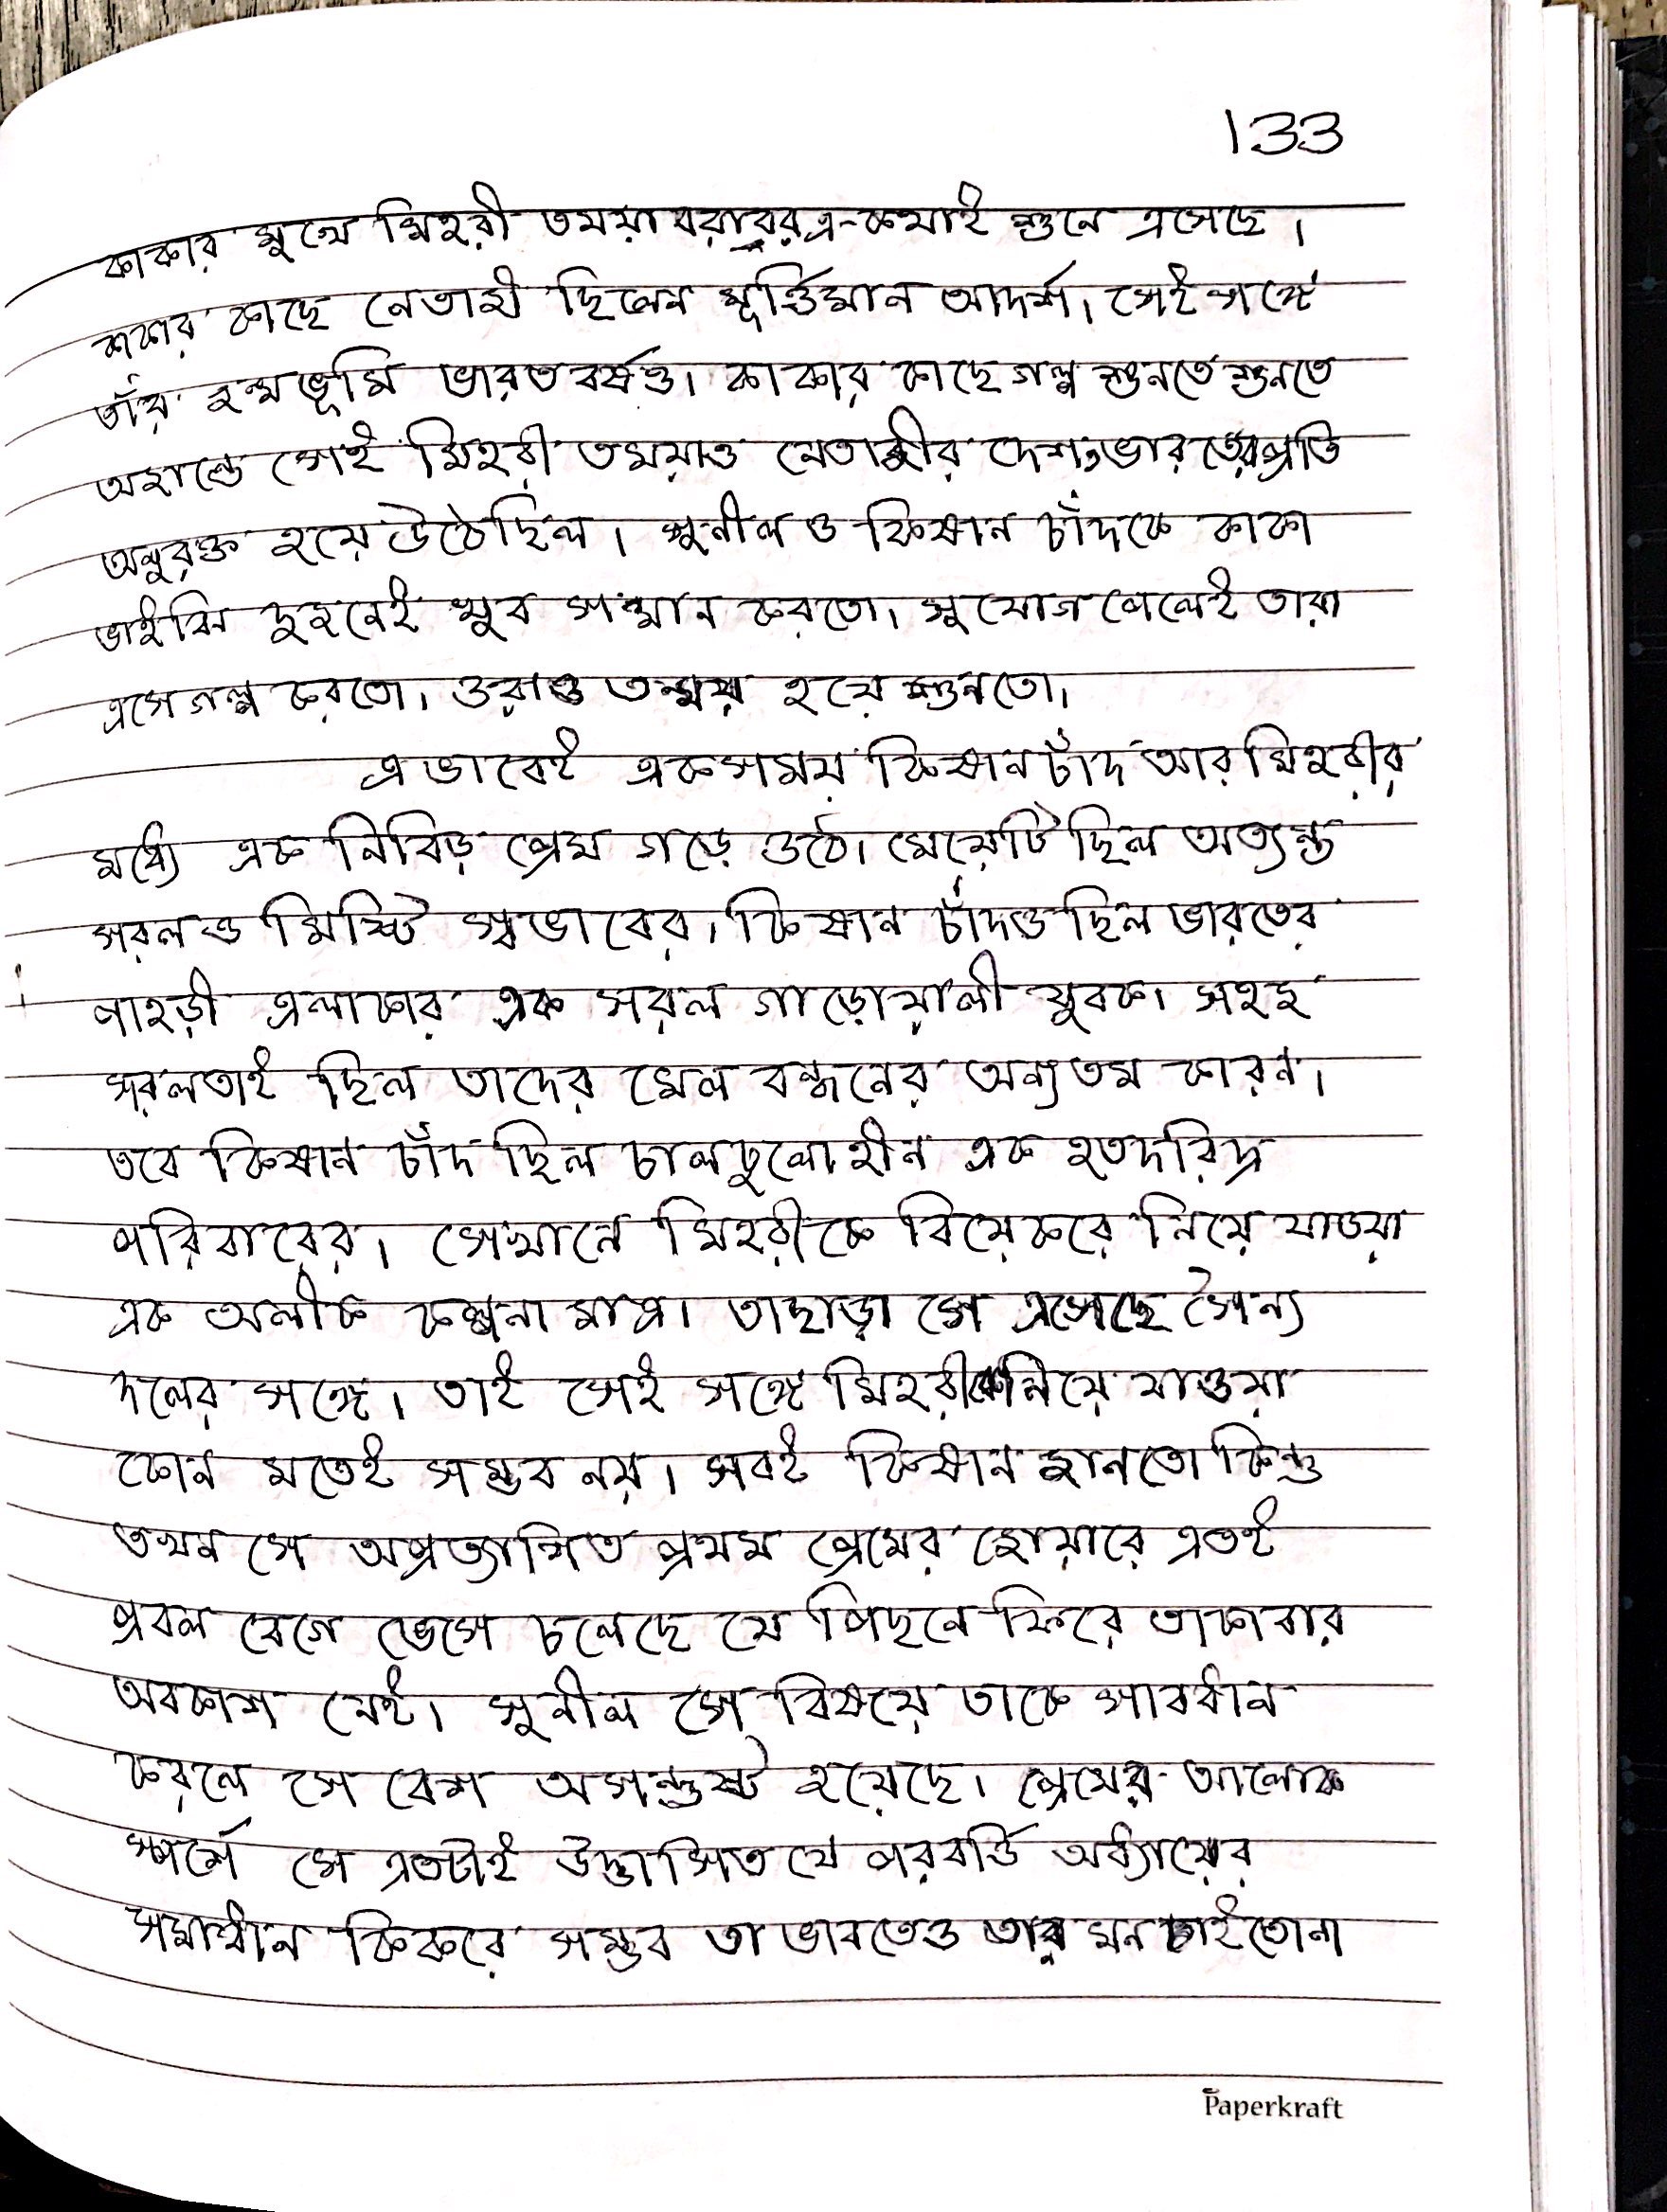 133
কাকার মুখে মিহরী তময়া বরাবর এ-কথাই শুনে এসেছে।
কাকার কাছে নেতাজী ছিলেন মূর্ত্তিমান আদর্শ। সেই সঙ্গে
তাঁর জন্মভূমি ভারতবর্ষও। কাকার কাছে গল্প শুনতে শুনতে
অজান্তে সেই মিহরী তময়াও নেতাজীর দেশ ভারতের প্রতি
অনুরক্ত হয়ে উঠেছিল। সুনীল ও কিষান চাঁদকে কাকা
ভাইঝি দুজনেই খুব সন্মান করতো। সুযোগ পেলেই তারা
এসে গল্প করতো। ওরাও তন্ময় হয়ে শুনতো।
এভাবেই একসময় কিষান চাঁদ আর মিহরীর
মধ্যে এক নিবিড় প্রেম গড়ে ওঠে। মেয়েটি ছিল অত্যন্ত
সরল ও মিষ্টি স্বভাবের। কিষান চাঁদও ছিল ভারতের
পাহড়ী এলাকার এক সরল গাড়োয়ালী যুবক। সহজ
সরলতাই ছিল তাদের মেল বন্ধনের অন্যতম কারন।
তবে কিষান চাঁদ ছিল চালচুলোহীন এক হতদরিদ্র
পরিবারের। সেখানে মিহরীকে বিয়ে করে নিয়ে যাওয়া
এক অলীক কল্পনা মাত্র। তাছাড়া সে এসেছে সৈন্য
দলের সঙ্গে। তাই সেই সঙ্গে মিহরীকে নিয়ে যাওয়া
কোন মতেই সম্ভব নয়। সবই কিষান জানতো কিন্তু
তখন সে অপ্রত্যাশিত প্রথম প্রেমের জোয়ারে এতই
প্রবল বেগে ভেসে চলেছে যে পিছনে ফিরে তাকাবার
অবকাশ নেই। সুনীল সে বিষয়ে তাকে সাবধান
করলে সে বেশ অসন্তুষ্ট হয়েছে। প্রেমের আলোক
স্পর্শে সে এতটাই উদ্ভাসিত যে পরবর্ত্তি অধ্যায়ের
সমাধান কি করে সম্ভব তা ভাবতেও তার মন চাইতোনা
Paperkraft